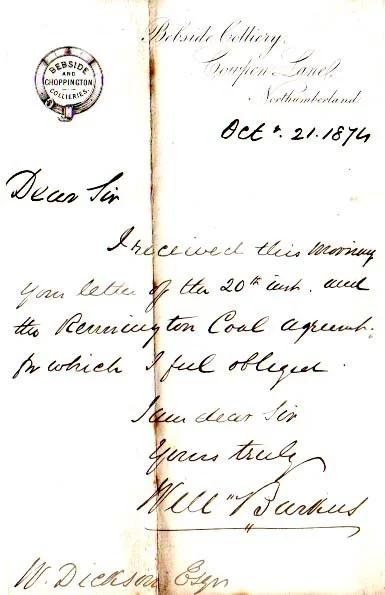 Bebside Colliery,
Cowpen Lane,
Northumberland
BEBSIDE
AND
CHOPPINGTON
COLLIERIES.
Octr. 21. 1874
Dear Sir
I received this morning
your letter of the 20th inst. and
the Rennington Coal Agreemt.
for which I feel obliged.
I am dear Sir
Yours truly
Willm Barkus
W. Dickson Esqr